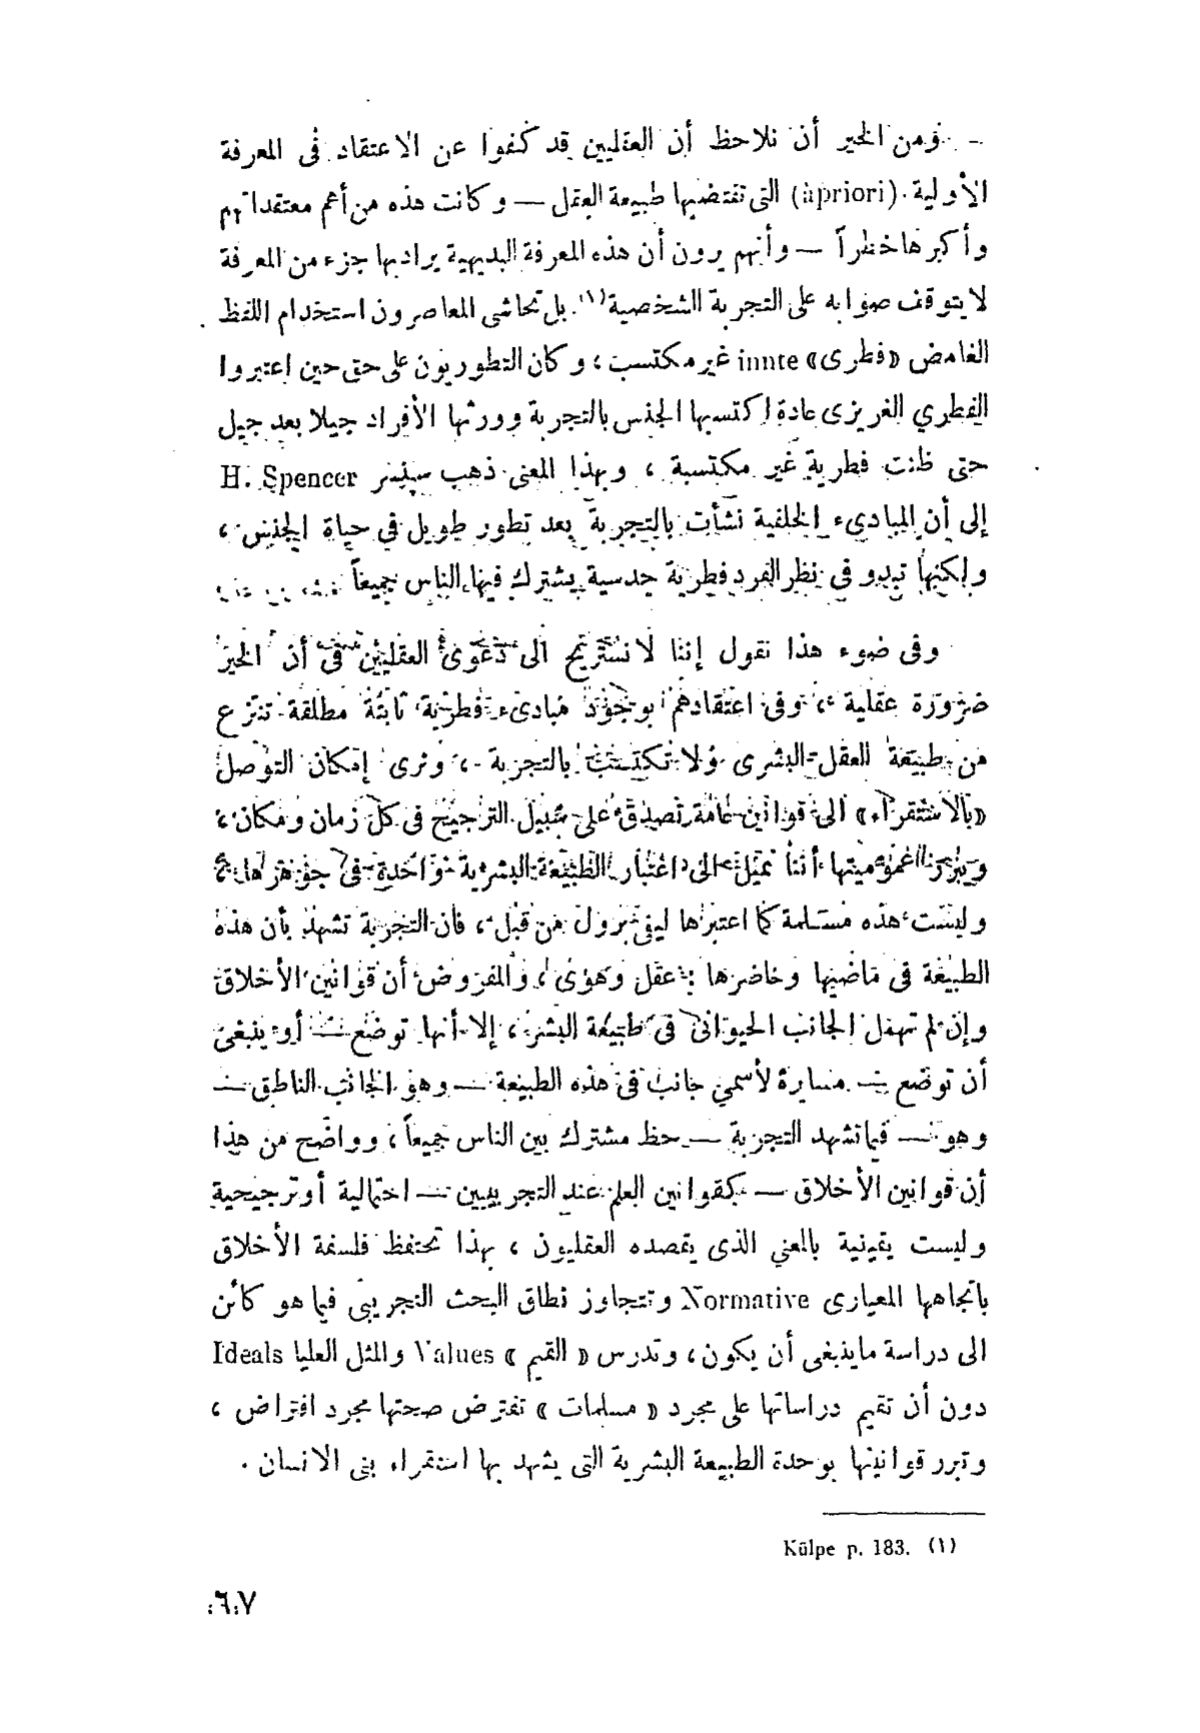 ومن الخير أن نلاحظ أن العقليين قد كفوا عن الاعتقاد فى المعرفة
الأولية (àpriori) التى تقتضيها طبيعة العقل — وكانت هذه من أهم معتقداتهم
وأكبرها خطراً — وأنهم يرون أن هذه المعرفة البديهية يراد بها جزء من المعرفة
لا يتوقف صوابه على التجربة الشخصية(١). بل تحاشى المعاصرون استخدام اللفظ
الغامض «فطرى» innte غير مكتسب ، وكان التطوريون على حق حين اعتبروا
الفطري الغريزى عادة اكتسبها الجنس بالتجربة وورثها الأفراد جيلا بعد جيل
حتى ظنت فطرية غير مكتسبة ، وبهذا المعنى ذهب سبنسر H. Spencer
إلى أن المبادىء الخلقية نشأت بالتجربة بعد تطور طويل في حياة الجنس ،
ولكنها تبدو في نظر الفرد فطرية حدسية يشترك فيها الناس جميعاً
وفى ضوء هذا نقول إننا لا نستريح الى دعوى العقليين فى أن الخير
ضرورة عقلية ، وفى اعتقادهم بوجود مبادىء فطرية ثابتة مطلقة تنتزع
من طبيعة العقل البشرى ولا تكتسب بالتجربة ، ونرى إمكان التوصل
«بالاستقراء» الى قوانين عامة تصدق على سبيل الترجيح فى كل زمان ومكان ،
ويبرر عموميتها أننا نميل الى اعتبار الطبيعة البشرية واحدة فى جوهرها ،
وليست هذه مسلمة كما اعتبرها ليفى برول من قبل ، فان التجربة تشهد بأن هذه
الطبيعة فى ماضيها وحاضرها : عقل وهوى ، والمفروض أن قوانين الأخلاق
وإن لم تهمل الجانب الحيوانى فى طبيعة البشر ، إلا أنها توضع — أو ينبغى
أن توضع — مسايرة لأسمى جانب فى هذه الطبيعة — وهو الجانب الناطق —
وهو — فيما تشهد التجربة — حظ مشترك بين الناس جميعاً ، وواضح من هذا
أن قوانين الأخلاق — كقوانين العلم عند التجريبيين — احتمالية أو ترجيحية
وليست يقينية بالمعني الذى يقصده العقليون ، بهذا تحتفظ فلسفة الأخلاق
باتجاهها المعيارى Normative وتتجاوز نطاق البحث التجريبى فيما هو كائن
الى دراسة ماينبغى أن يكون ، وتدرس « القيم » Values والمثل العليا Ideals
دون أن تقيم دراساتها على مجرد « مسلمات » تفترض صحتها مجرد افتراض ،
وتبرر قوانينها بوحدة الطبيعة البشرية التى يشهد بها استقراء بنى الانسان .
(١) Külpe p. 183.
٦٠٧